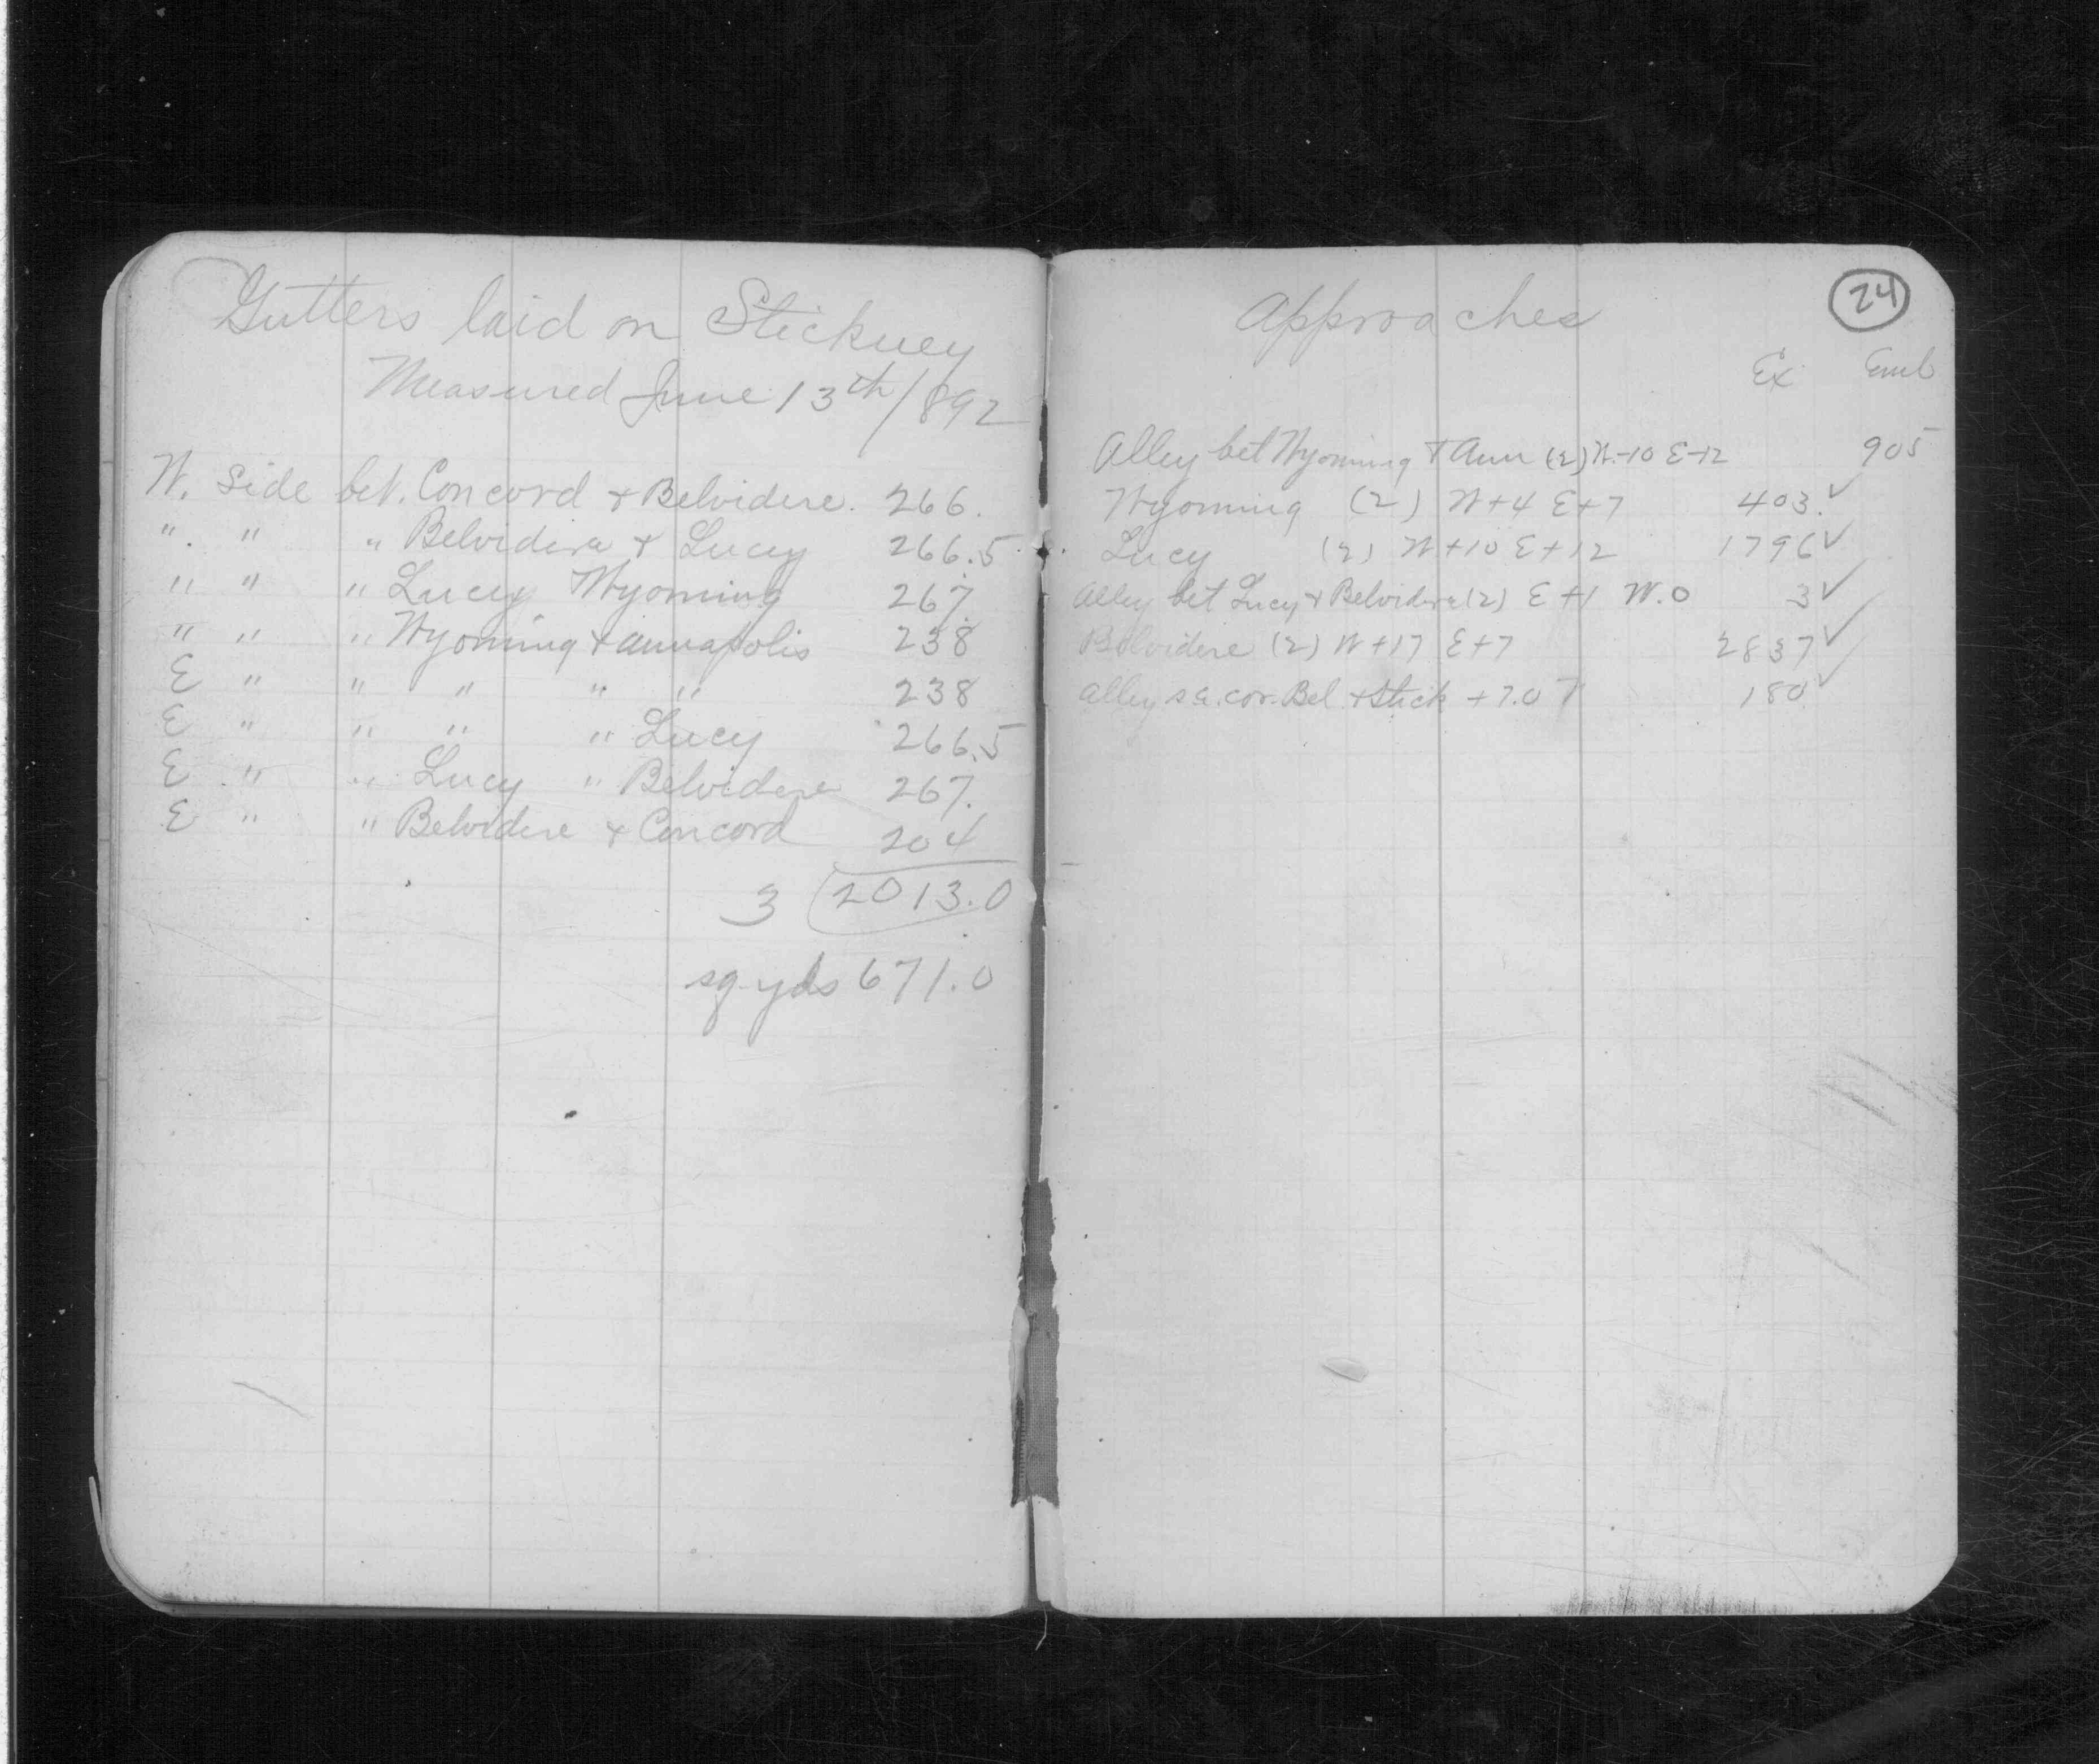 Gutters laid on Stickney
Measured June 13th/892
W. Side bet. Concord + Belvidere. 266.
". " " Belvidira + Lucy 266.5
" " " Lucy Wyoming 267.
" " " Wyoming + Annapolis 238
E " " " " " 238
E " " " " Lucy 266.5
E " " Lucy " Belvidere 267.
E " " Belvidere + Concord 204
3 (2013.0
sq yds 671.0
24
Approaches
Ex Emb
Alley bet Wyoming + Ann (2) W.-10 E-12 905
Wyoming (2) W+4 E+7 403. ✓
Lucy (2) W+10 E+12 1796 ✓
Alley bet Lucy + Belvidere (2) E+1 W.0 3 ✓
Belvidere (2) W+17 E+7 2837 ✓
Alley s.e. cor. Bel + Stick +7.0 180 ✓